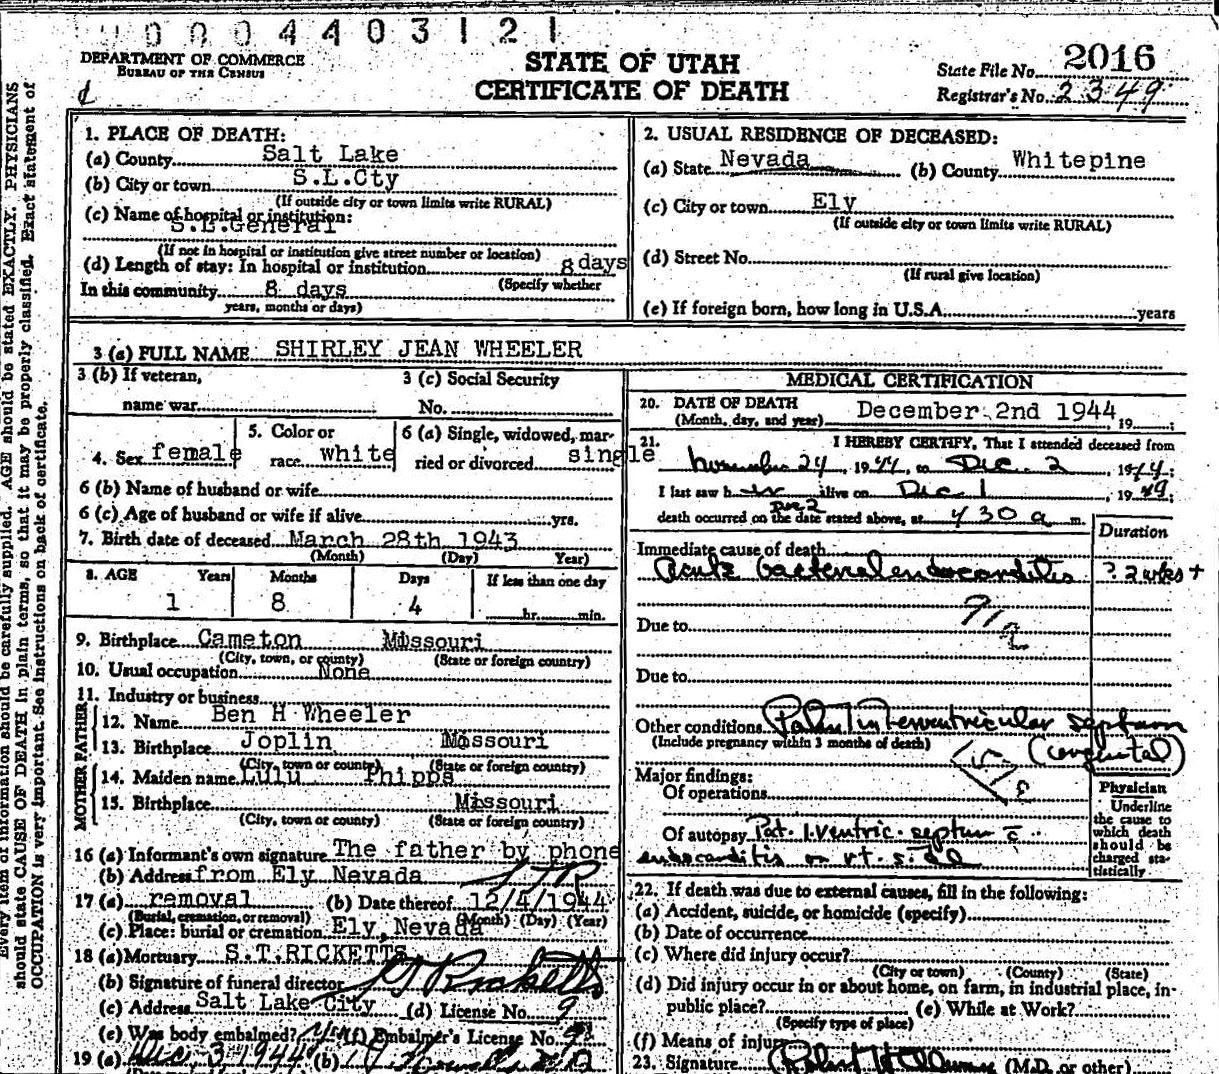 0004403121
DEPARTMENT OF COMMERCE
BUREAU OF THE CENSUS
STATE OF UTAH
CERTIFICATE OF DEATH
State File No. 2016
Registrar's No. 2349
Every item of information should be carefully supplied. AGE should be stated EXACTLY. PHYSICIANS
should state CAUSE OF DEATH in plain terms, so that it may be properly classified. Exact statement of
OCCUPATION is very important. See instructions on back of certificate.
1. PLACE OF DEATH:
(a) County Salt Lake
(b) City or town S.L.Cty
(If outside city or town limits write RURAL)
(c) Name of hospital or institution:
S.L.General
(If not in hospital or institution give street number or location)
(d) Length of stay: In hospital or institution 8 days
(Specify whether
In this community 8 days
years, months or days)
2. USUAL RESIDENCE OF DECEASED:
(a) State Nevada (b) County Whitepine
(c) City or town Ely
(If outside city or town limits write RURAL)
(d) Street No.
(If rural give location)
(e) If foreign born, how long in U.S.A. years
3 (a) FULL NAME SHIRLEY JEAN WHEELER
3 (b) If veteran,
name war
3 (c) Social Security
No.
4. Sex female
5. Color or
race white
6 (a) Single, widowed, mar-
ried or divorced single
6 (b) Name of husband or wife
6 (c) Age of husband or wife if alive yrs.
7. Birth date of deceased March 28th 1943
(Month) (Day) Year)
8. AGE Years Months Days If less than one day
1 8 4 hr. min.
9. Birthplace Cameton Missouri
(City, town, or county) (State or foreign country)
10. Usual occupation None
11. Industry or business
FATHER
12. Name Ben H Wheeler
13. Birthplace Joplin Missouri
(City, town or county) (State or foreign country)
MOTHER
14. Maiden name Lulu Phipps
15. Birthplace Missouri
(City, town or county) (State or foreign country)
16 (a) Informant's own signature The father by phone
(b) Address from Ely Nevada STR
17 (a) removal (b) Date thereof 12/4/1944
(Burial, cremation, or removal) (Month) (Day) (Year)
(c) Place: burial or cremation Ely, Nevada
18 (a) Mortuary S.T.RICKETTS
(b) Signature of funeral director Ricketts
(c) Address Salt Lake City (d) License No. 9
(e) Was body embalmed? (f) Embalmer's License No.
19 (a) Dec. 3 1944 (b)
MEDICAL CERTIFICATION
20. DATE OF DEATH December 2nd 1944, 19 ;
(Month, day, and year)
21. I HEREBY CERTIFY, That I attended deceased from
November 24, 1944, to Dec. 2, 1944;
I last saw her alive on Dec 1, 19 ;
Dec 2
death occurred on the date stated above, at 430 a m.
Duration
Immediate cause of death
Acute bacterial endocarditis ? 2 wks +
Due to
Due to
Other conditions Patent interventricular septum
(Include pregnancy within 3 months of death) (congenital)
Major findings:
Of operations
Of autopsy Pat. I. Ventric. septum c
endocarditis on rt. side
Physician
Underline
the cause to
which death
should be
charged sta-
tistically
22. If death was due to external causes, fill in the following:
(a) Accident, suicide, or homicide (specify)
(b) Date of occurrence
(c) Where did injury occur?
(City or town) (County) (State)
(d) Did injury occur in or about home, on farm, in industrial place, in-
public place? (e) While at Work?
(Specify type of place)
(f) Means of injury
23. Signature Robert (M.D. or other)